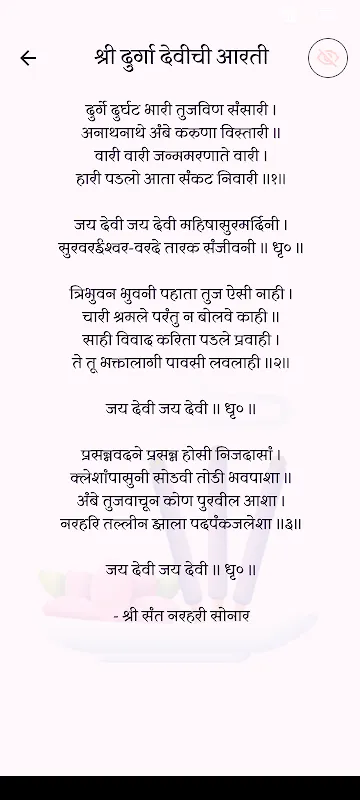 श्री दुर्गा देवीची आरती
दुर्गे दुर्घट भारी तुजविण संसारी ।
अनाथनाथे अंबे करुणा विस्तारी ॥
वारी वारी जन्ममरणाते वारी ।
हारी पडलो आता संकट निवारी ॥१॥
जय देवी जय देवी महिषासुरमर्दिनी ।
सुरवरईश्वर-वरदे तारक संजीवनी ॥ धृ० ॥
त्रिभुवन भुवनी पहाता तुज ऐसी नाही ।
चारी श्रमले परंतु न बोलवे काही ॥
साही विवाद करिता पडले प्रवाही ।
ते तू भक्तालागी पावसी लवलाही ॥२॥
जय देवी जय देवी ॥ धृ० ॥
प्रसन्नवदने प्रसन्न होसी निजदासां ।
क्लेशांपासुनी सोडवी तोडी भवपाशा ॥
अंबे तुजवाचून कोण पुरवील आशा ।
नरहरि तल्लीन झाला पदपंकजलेशा ॥३॥
जय देवी जय देवी ॥ धृ० ॥
- श्री संत नरहरी सोनार